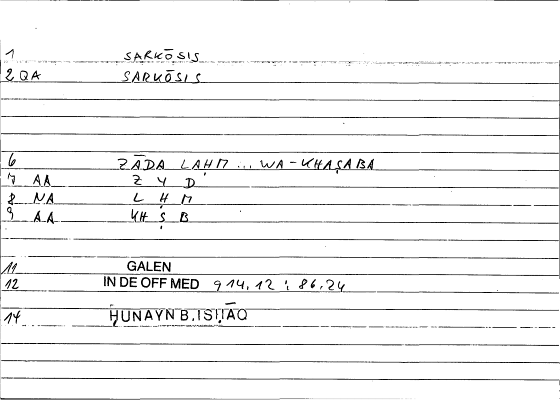 1 SARKŌSIS
2 QA SARKŌSIS
6 ZĀDA LAḤM ... WA-KHAṢABA
7 AA Z Y D
8 NA L Ḥ M
9 AA KH Ṣ B
11 GALEN
12 IN DE OFF MED 914.12 : 86.24
14 ḤUNAYN B. ISḤĀQ